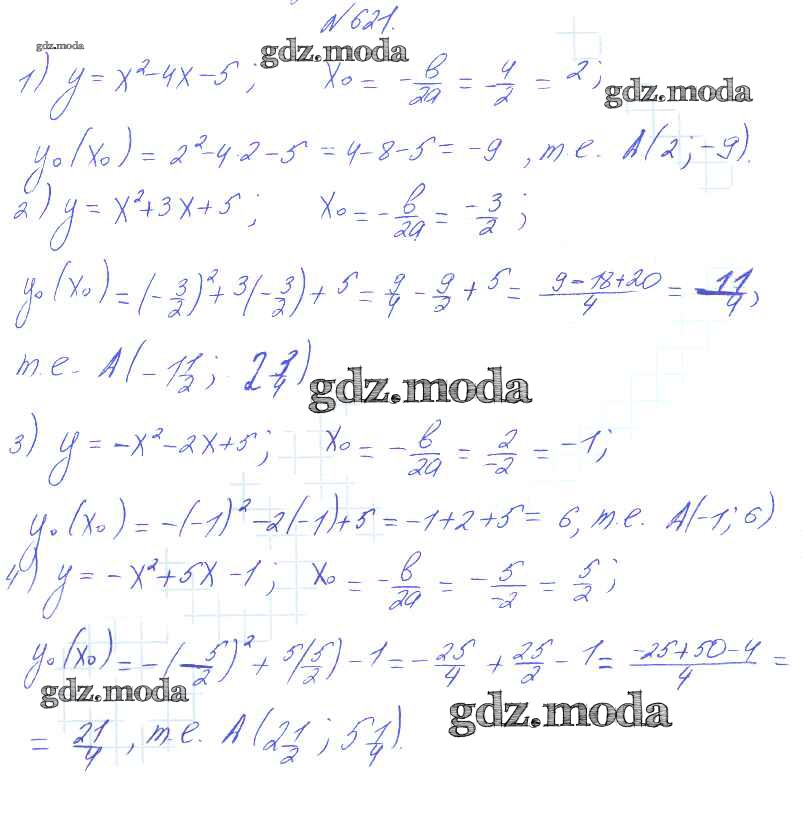 №621.
gdz.moda
gdz.moda
1) y = x² - 4x - 5; x₀ = -b/2a = 4/2 = 2;
gdz.moda
y₀(x₀) = 2² - 4·2 - 5 = 4 - 8 - 5 = -9, т.е. A(2; -9).
2) y = x² + 3x + 5; x₀ = -b/2a = -3/2;
y₀(x₀) = (-3/2)² + 3(-3/2) + 5 = 9/4 - 9/2 + 5 = (9 - 18 + 20)/4 = 11/4,
т.е. A(-1 1/2; 2 3/4)
gdz.moda
3) y = -x² - 2x + 5; x₀ = -b/2a = 2/-2 = -1;
y₀(x₀) = -(-1)² - 2(-1) + 5 = -1 + 2 + 5 = 6, т.е. A(-1; 6)
4) y = -x² + 5x - 1; x₀ = -b/2a = -5/-2 = 5/2;
y₀(x₀) = -(-5/2)² + 5(5/2) - 1 = -25/4 + 25/2 - 1 = (-25 + 50 - 4)/4 =
gdz.moda
gdz.moda
= 21/4, т.е. A(2 1/2; 5 1/4).